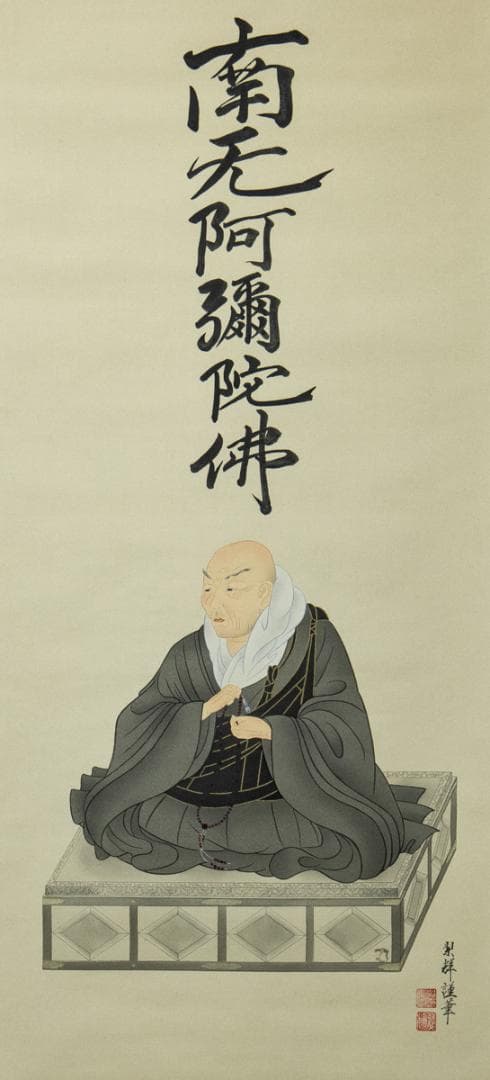 南无阿彌陀佛
謹筆